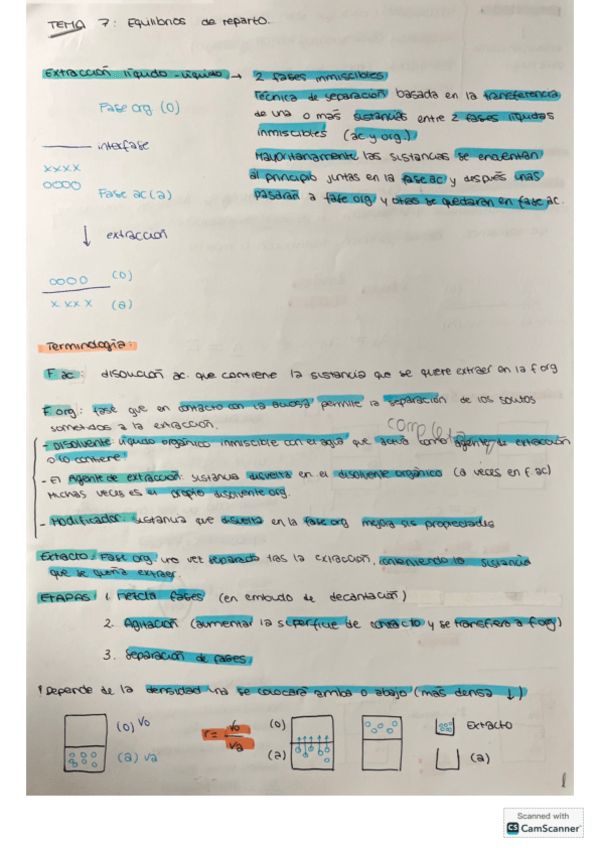 TEMA 7: Equilibrios de reparto.
Extracción líquido-líquido → 2 fases inmiscibles
Técnica de separación basada en la transferencia
de una o más sustancias entre 2 fases líquidas
inmiscibles (ac y org.)
Mayoritariamente las sustancias se encuentran
al principio juntas en la fase ac y después unas
pasarán a fase org y otras se quedarán en fase ac.
Fase org (o)
interfase
xxxx
oooo
Fase ac (a)
↓ extracción
oooo (o)
x xx x (a)
Terminología:
F. ac: disolución ac. que contiene la sustancia que se quiere extraer en la f org
F. org: fase que en contacto con la acuosa permite la separación de los solutos
sometidos a la extracción.
completa
- Disolvente: líquido orgánico inmiscible con el agua que actúa como agente de extracción
o lo contiene
- El Agente de extracción: sustancia disuelta en el disolvente orgánico (a veces en f. ac)
Muchas veces es el propio disolvente org.
- Modificador: sustancia que disuelta en la fase org mejora sus propiedades
Extracto: Fase org. una vez separada tras la extracción, conteniendo la sustancia
que se quería extraer.
ETAPAS: 1. Mezcla fases (en embudo de decantación)
2. Agitación (aumentar la superficie de contacto y se transfiera a f org)
3. Separación de fases
! Depende de la densidad una se colocará arriba o abajo (más densa ↓)
(o) Vo
(a) Va
r = Vo/Va
(o)
(a)
Extracto
(a)
1
Scanned with
CS CamScanner